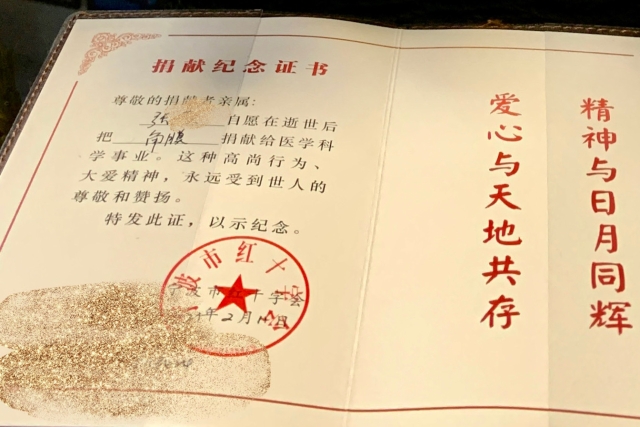 捐献纪念证书
尊敬的捐献者亲属:
张 自愿在逝世后
把 角膜 捐献给医学科
学事业。这种高尚行为、
大爱精神，永远受到世人的
尊敬和赞扬。
特发此证，以示纪念。
波市红十字会
宁波市红十字会
年2月1 日
精神与日月同辉
爱心与天地共存